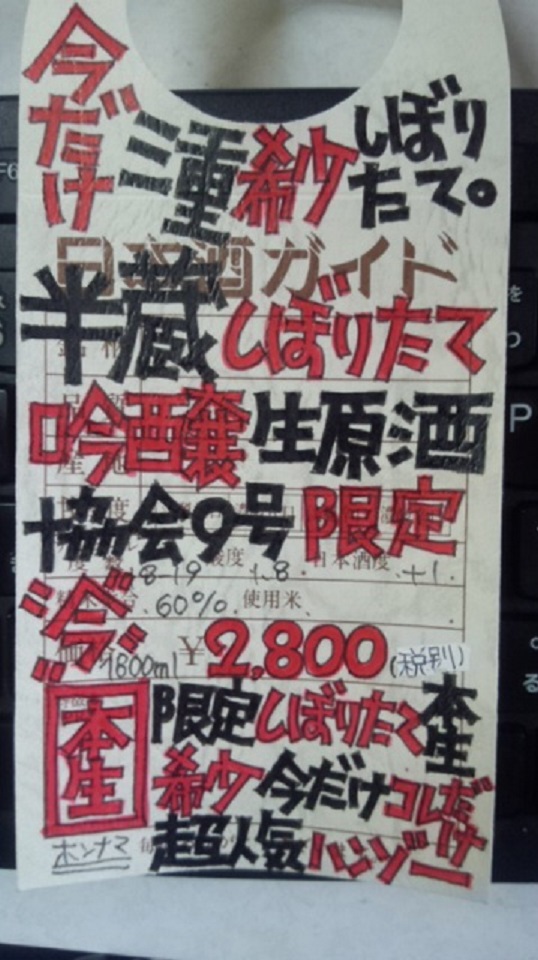 今だけ 三重 希少 しぼりたて。
日本酒ガイド
半蔵 しぼりたて
吟醸 生原酒
協会9号 限定
度数 18-19 酸度 1.8 日本酒度 +1
60% 使用米
1800ml ¥2,800(税別)
本生 限定 しぼりたて 本生
希少 今だけ コレだけ
ホンナマ 超人気 ハンゾー